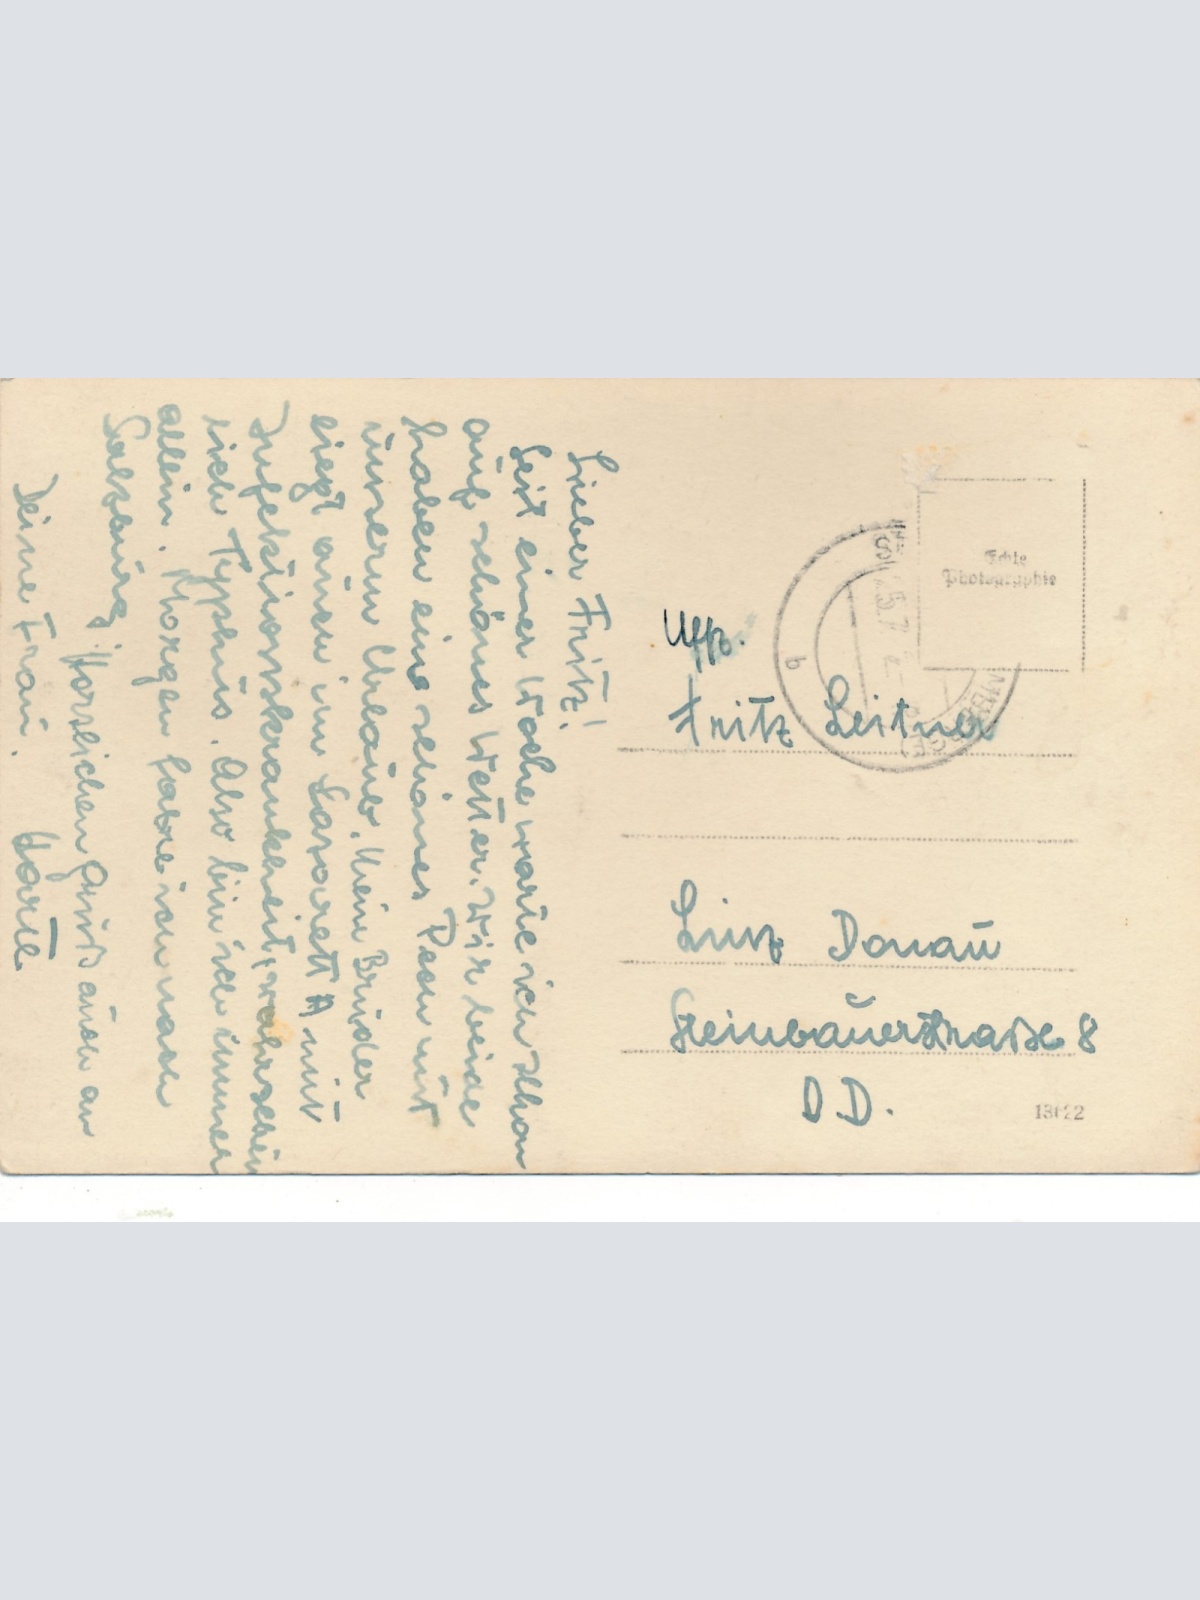 Lieber Fritz!
Seit einer Woche warte ich schon
auf schönes Wetter. Wir beide
haben ein schönes Pech mit
unserm Urlaub. Mein Bruder
liegt auch im Lazarett mit
Infektionskrankheit, wahrschein
lich Typhus. Also bin ich immer
allein. Morgen fahre ich nach
Salzburg. Herzlichen Gruß auch an
Deine Frau.
Uffz.
Fritz Leitner
Linz Donau
Steinbauerstraße 8
O D.
Echte
Photographie
b
13022